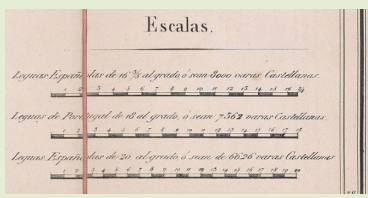 Escalas.
Leguas Españolas de 16 2/3 al grado, ó sean 8000 varas Castellanas.
1 2 3 4 5 6 7 8 9 10 11 12 13 14 15 16
Leguas de Portugal de 18 al grado, ó sean 7362 varas Castellanas.
1 2 3 4 5 6 7 8 9 10 11 12 13 14 15 16 17 18
Leguas Españolas de 20 al grado, ó sean de 6626 varas Castellanas